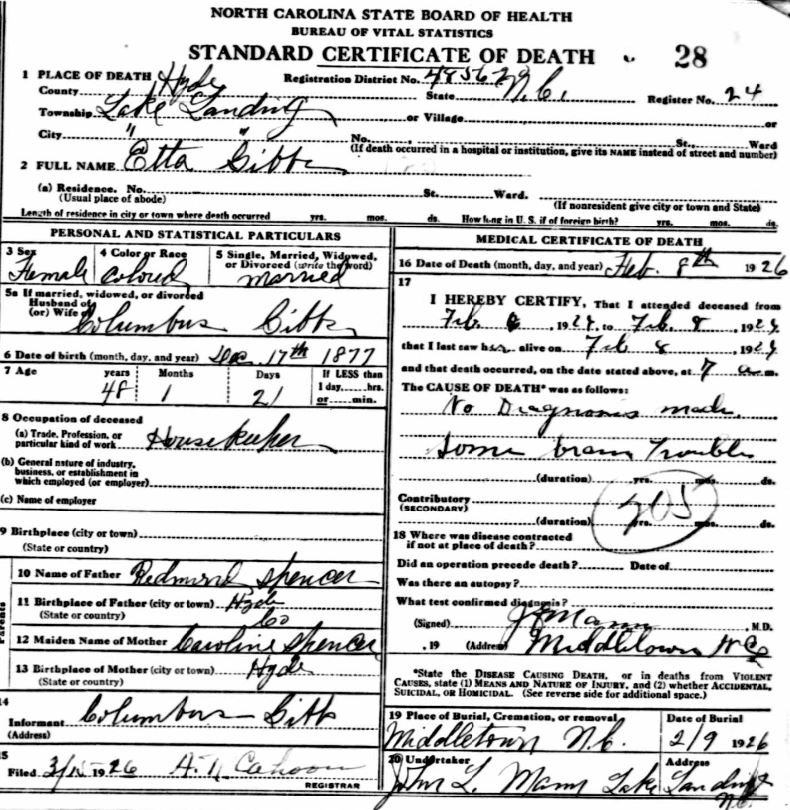 NORTH CAROLINA STATE BOARD OF HEALTH
BUREAU OF VITAL STATISTICS
STANDARD CERTIFICATE OF DEATH 28
1 PLACE OF DEATH Registration District No.
County Hyde State N.C. Register No. 24
Township Lake Landing or Village or
City " " No. St., Ward
(If death occurred in a hospital or institution, give its NAME instead of street and number)
2 FULL NAME Etta Gibbs
(a) Residence. No. St. Ward.
(Usual place of abode) (If nonresident give city or town and State)
Length of residence in city or town where death occurred yrs. mos. ds. How long in U. S. if of foreign birth? yrs. mos. ds.
PERSONAL AND STATISTICAL PARTICULARS
3 Sex 4 Color or Race 5 Single, Married, Widowed,
or Divorced (write the word)
Female Colored Married
5a If married, widowed, or divorced
Husband of
(or) Wife of Columbus Gibbs
6 Date of birth (month, day, and year) Dec 17th 1877
7 Age years Months Days If LESS than
1 day, hrs.
48 1 21 or min.
8 Occupation of deceased
(a) Trade, Profession, or
particular kind of work Housekeeper
(b) General nature of industry,
business, or establishment in
which employed (or employer)
(c) Name of employer
9 Birthplace (city or town)
(State or country)
Parents
10 Name of Father Redmond Spencer
11 Birthplace of Father (city or town) Hyde
(State or country) Co
12 Maiden Name of Mother Caroline Spencer
13 Birthplace of Mother (city or town) Hyde
(State or country)
14
Informant Columbus Gibbs
(Address)
15
Filed 3/15 1926 A. N. Cahoon
REGISTRAR
MEDICAL CERTIFICATE OF DEATH
16 Date of Death (month, day, and year) Feb. 8th 1926
17
I HEREBY CERTIFY, That I attended deceased from
Feb , 192 , to Feb 8 , 192
that I last saw her alive on Feb 8 , 192
and that death occurred, on the date stated above, at 7 a.m.
The CAUSE OF DEATH* was as follows:
No Diagnosis made.
Some brain Trouble
(duration) yrs. mos. ds.
Contributory
(SECONDARY) 205
(duration) yrs. mos. ds.
18 Where was disease contracted
if not at place of death?
Did an operation precede death? Date of
Was there an autopsy?
What test confirmed diagnosis?
(Signed) Mann M.D.
, 19 (Address) Middletown N.C.
*State the DISEASE CAUSING DEATH, or in deaths from VIOLENT
CAUSES, state (1) MEANS AND NATURE OF INJURY, and (2) whether ACCIDENTAL,
SUICIDAL, OR HOMICIDAL. (See reverse side for additional space.)
19 Place of Burial, Cremation, or removal Date of Burial
Middletown N.C. 2/9 1926
20 Undertaker Address
John L. Mann Lake Landing
N.C.